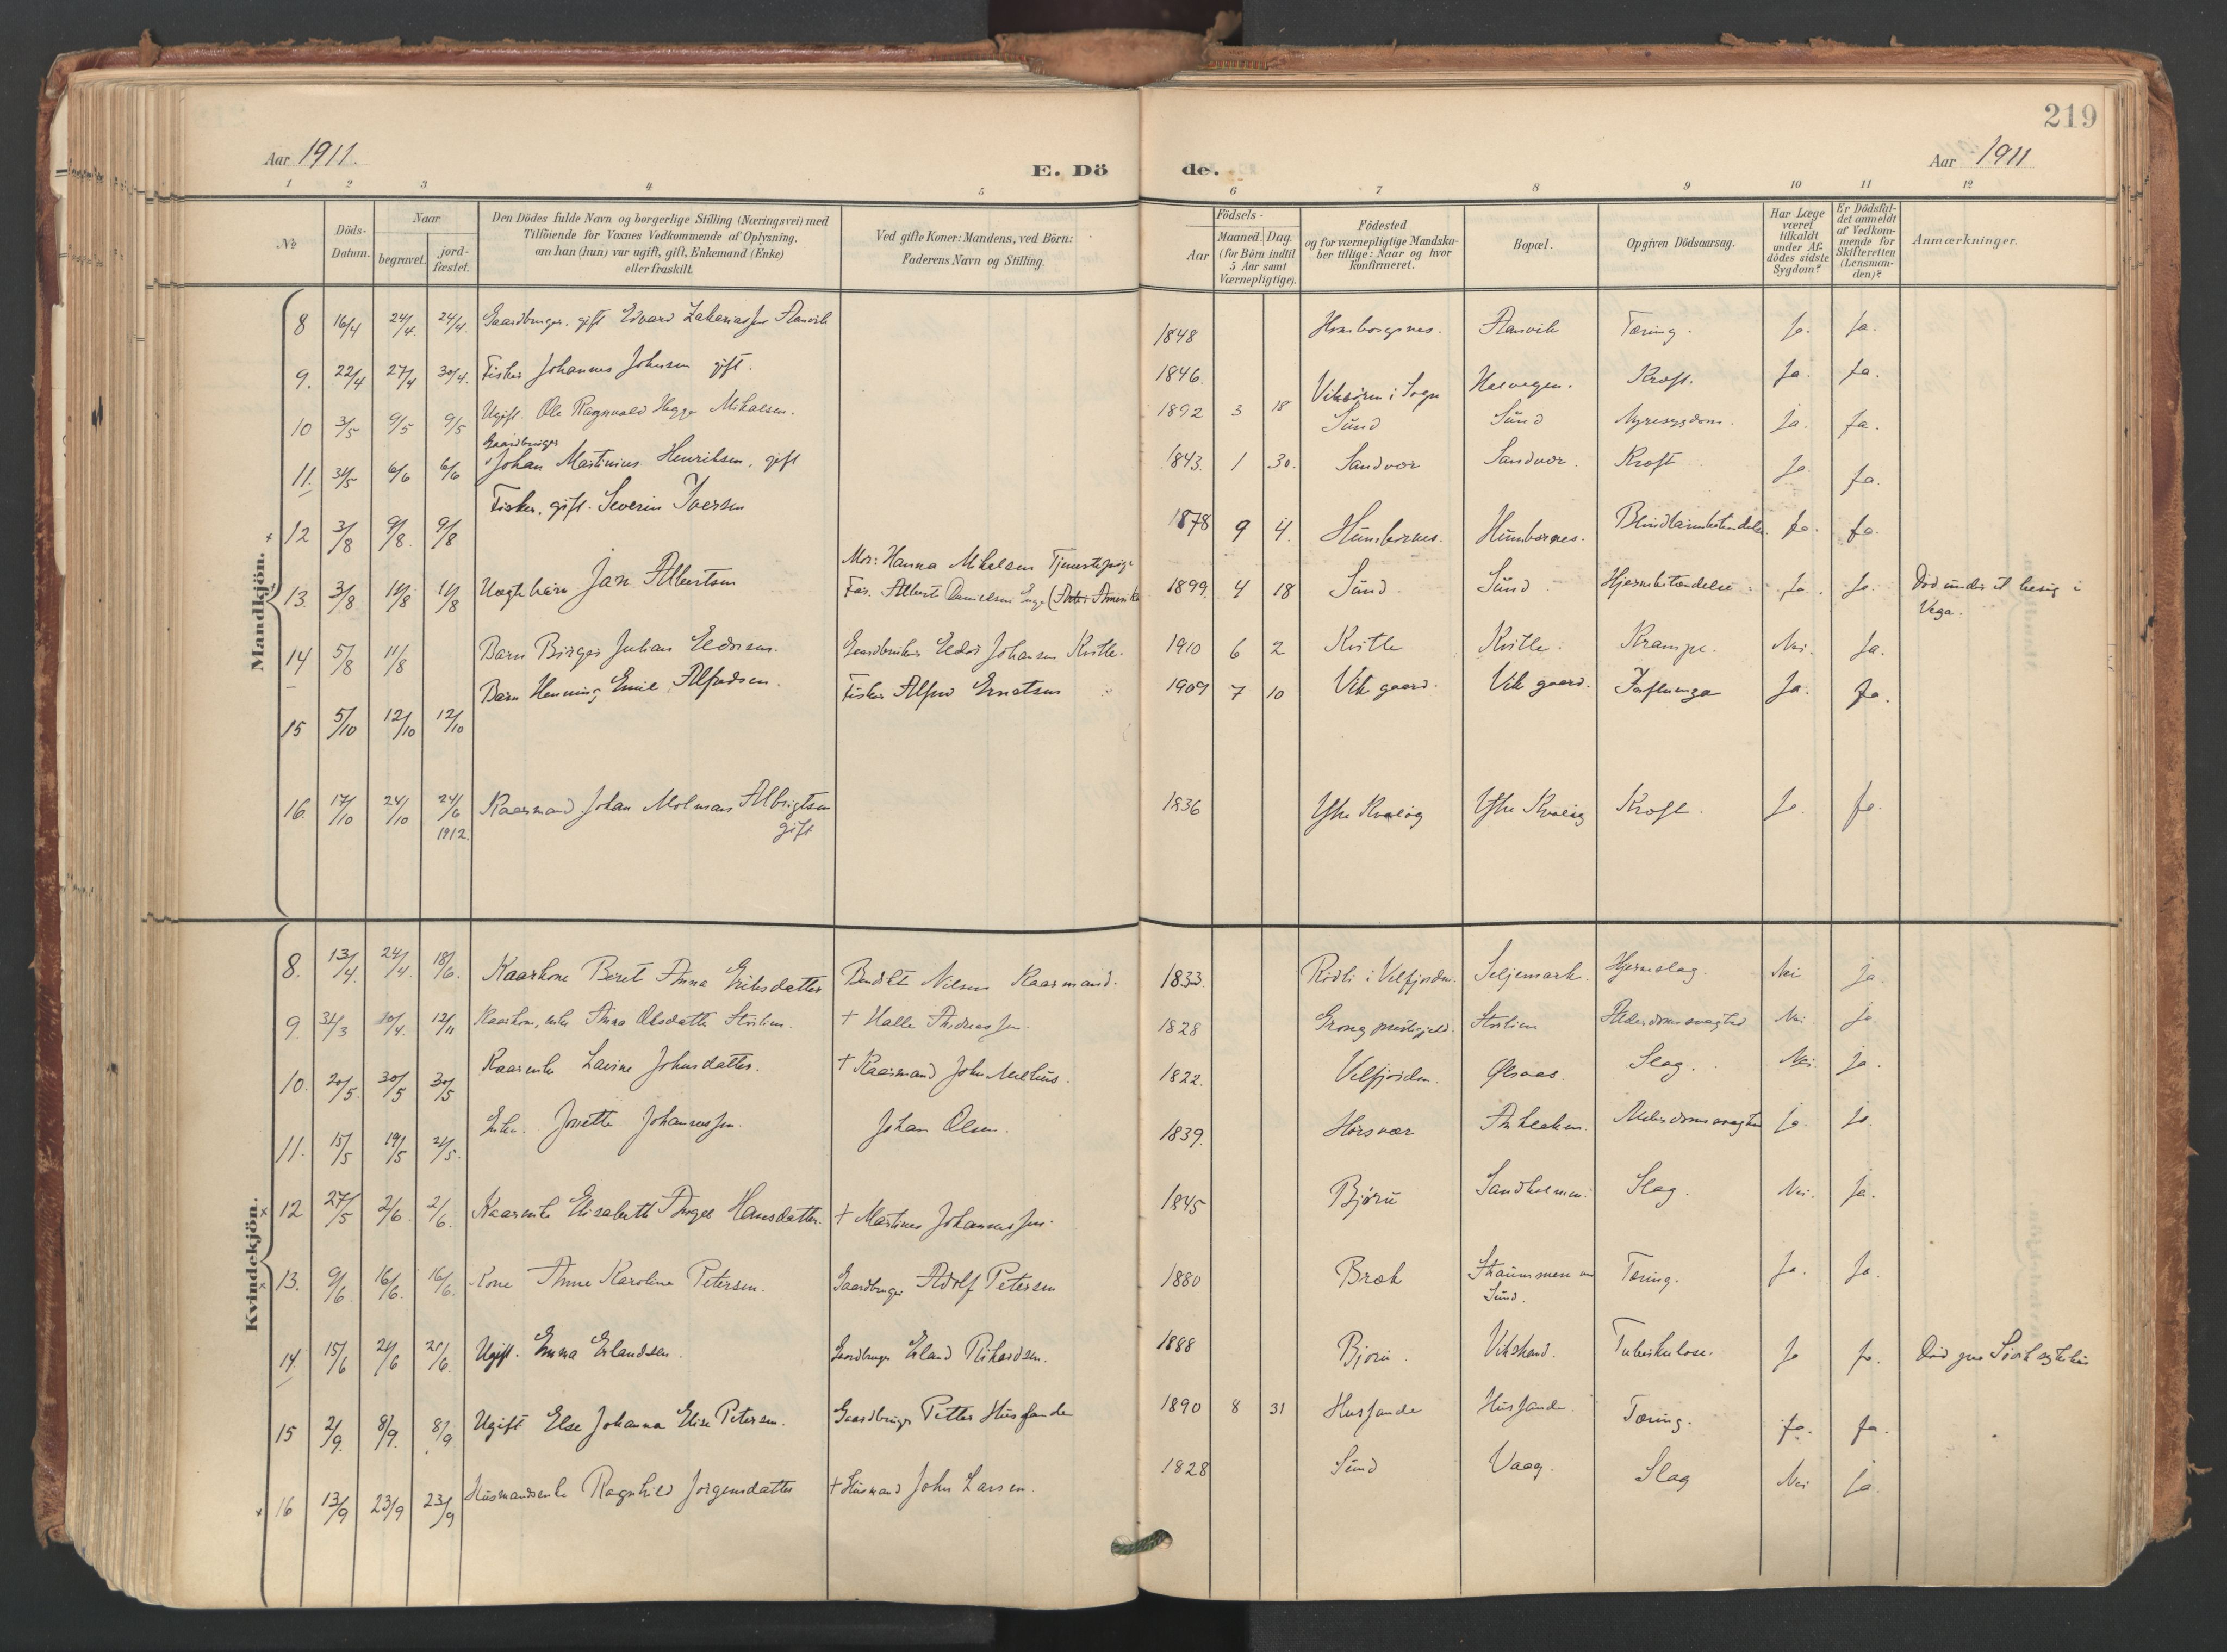 219
Aar 1911.
E. Dö
de.
Aar 1911
1 2 3 4 5 6 7 8 9 10 11 12
No
Döds-
Datum.
Naar
begravet.
jord-
fæstet.
Den Dödes fulde Navn og borgerlige Stilling (Næringsvei) med
Tilföiende for Voxnes Vedkommende af Oplysning,
om han (hun) var ugift, gift, Enkemand (Enke)
eller fraskilt.
Ved gifte Koner: Mandens, ved Börn:
Faderens Navn og Stilling.
Födsels-
Aar
Maaned. Dag.
(for Börn indtil
5 Aar samt
Værnepligtige).
Födested
og for værnepligtige Mandska-
ber tillige: Naar og hvor
konfirmeret.
Bopæl.
Opgiven Dödsaarsag.
Har Læge
været
tilkaldt
under Af-
dödes sidste
Sygdom?
Er Dödsfal-
det anmeldt
af Vedkom-
mende for
Skifteretten
(Lensman-
den)?
Anmærkninger.
Mandkjön.
8 16/4 24/4. 24/4. Gaardbruger. gift Edvard Zakariassen Aanvik 1848 Aanvik Tæring. Ja. Ja.
9. 22/4 27/4 30/4. Fisker Johannes Johnsen gift. 1846. i Sogn Kræft. Ja. Ja.
10 3/5 9/5 9/5 Ugift. Ole Ragnvald Mikalsen. 1892 3 18 Sund Sund Nyresygdom. Ja. Ja.
Gaardbruger
11. 31/5 6/6 6/6 Johan Martinius Henriksen, gift 1843. 1 30. Sandvær Sandvær. Kræft Ja. Ja.
12 3/8 9/8. 9/8 Fisker, gift. Severin Iversen 1878 9 4. Humbornes. Humbornes. Ja. Ja.
Mor: Hanna Mikalsen Tjenestepige
13. 3/8 11/8 11/8 Jan Albertsen Far. Albert Danielsen Amerika 1899. 4 18 Sund. Sund Hjernebetændelse. Ja. Ja. Död under et besög i
Vega.
14 5/8 11/8 Barn Birger Julian Eldorsen. Gaardbruker Eldor Johansen Kvitle. 1910 6 2 Kvitle Kvitle. Krampe. Nei. Ja.
15 5/10 12/10 12/10 Barn Henning Emil Alfredsen. Fisker Alfred 1909 7 10 Vik gaard. Vik gaard. Influenza Ja. Ja.
16. 17/10 24/10 24/6 Kaarmand Johan Albrigtsen 1836 Ytre Kvaløy Ytre Kvaløy Kræft. Ja. Ja.
1912. gift
Kvindekjön.
8. 13/4. 24/4. 18/6. Kaarkone Berit Anna Eriksdatter Bendikt Nilsen Kaarmand. 1833. i Velfjorden. Seljemark. Hjerneslag. Nei ja.
9. 31/3 10/4. 12/11 Anna Olsdatter Storlien. + Halle Andreassen. 1828 Grong præstegjeld. Storlien Alderdomssvaghed Nei. ja.
10. 20/5. 30/5 30/5 Kaarenke Lavine Johnsdatter. + Kaarmand John 1822. Velfjorden. Ølsaas. Slag. Nei. ja.
11. 15/5 19/5 21/5. Enke. Jonette Johannessen. Johan Olsen. 1839. Horsvær Alderdomssvaghed ja. ja.
12 27/5 2/6. 2/6. Kaarenke Elisabeth Hansdatter. + Martinus Johannessen. 1845 Bjørn Sandholmen. Slag. Nei. Ja.
13. 9/6. 16/6. 16/6. Kone Anne Karoline Petersen. Gaardbruger Adolf Petersen 1880 Bræk Straummen ved
Sund. Tæring. Ja. Ja.
14. 15/6 21/6 21/6. Ugift. Emma Erlandsen. Gaardbruger Erland Rikardsen. 1888 Bjørn. Vikstrand. Tuberkulose. Ja Ja. Död paa
15 2/9. 8/9. 8/9 Ugift Else Johanna Elise Petersen. Gaardbruger Petter Husfande 1890 8 31 Husfande Husfande. Tæring. Ja. Ja.
16 13/9 23/9 23/9 Husmandsenke Ragnhild Jørgensdatter + Husmand John Larsen. 1828 Sund Vaag. Slag Nei Ja.